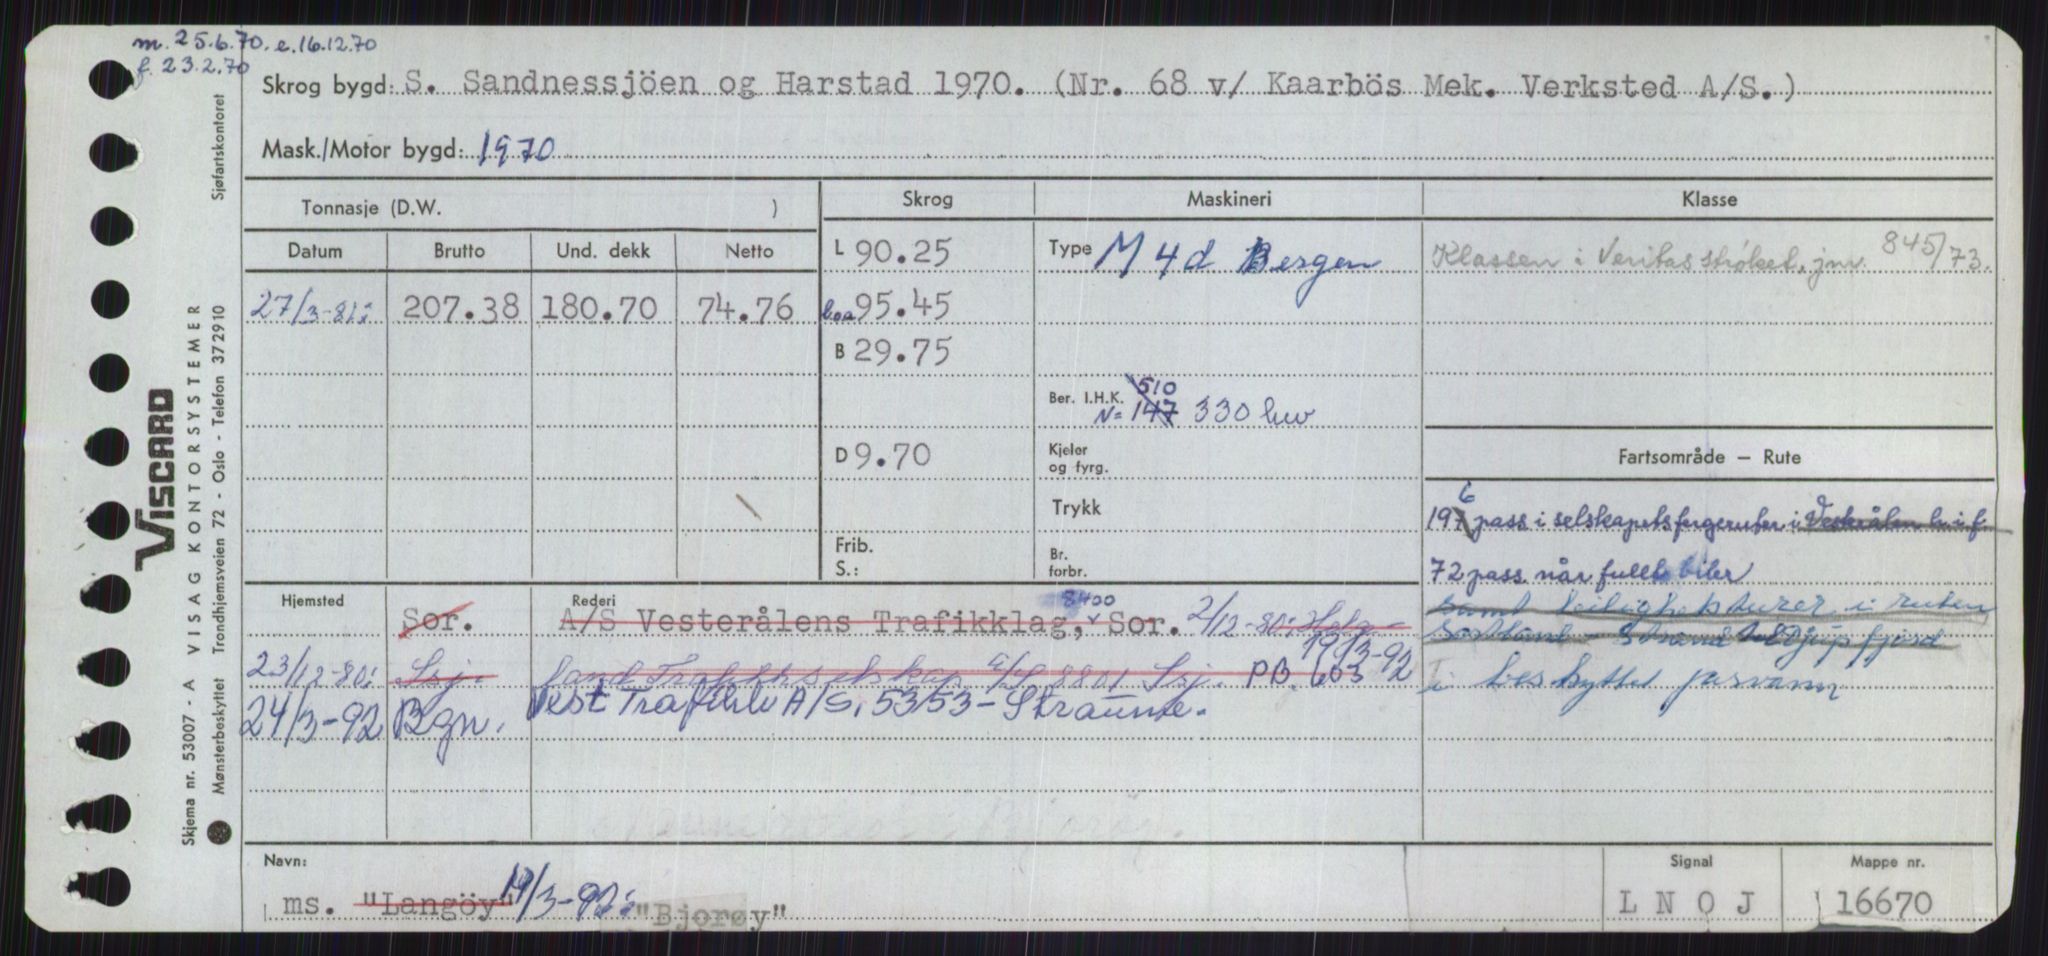 m. 25.6.70. e.16.12.70
f. 23.2.70
Skrog bygd: S. Sandnessjöen og Harstad 1970. (Nr. 68 v/ Kaarbös Mek. Verksted A/S.)
Mask./Motor bygd: 1970
Tonnasje (D.W. )
Skrog Maskineri Klasse
Datum Brutto Und. dekk Netto
L 90.25 Type M 4 d Bergen Klassen i Veritas strøket. jnr. 845/73.
27/3-81: 207.38 180.70 74.76 loa 95.45
B 29.75
510
Ber. I.H.K. N= 147 330 hw
D 9.70 Kjeler og fyrg.
Fartsområde – Rute
Trykk
6
197 pass i selskapets fergeruter i Vesterålen
Frib.
S.:
Br. forbr.
72 pass når fullt biler
samt leilighetsturer i ruten
Sortland - Strand
i beskyttet farvann
Hjemsted Rederi
8400
Sor. A/S Vesterålens Trafikklag, Sor. 2/12-80:
19/3-92
23/12-80: Ssj. land Trafikkselskap A/S 8801 Ssj. PB. 603
24/3-92 Bgn. Vest Trafikk A/S, 5353-Straume.
Navn: Signal Mappe nr.
ms. "Langöy" 19/3-92: "Bjorøy" L N O J 16670
VISCARD
Skjema nr. 53007 - A VISAG KONTORSYSTEMER
Mønsterbeskyttet Trondhjemsveien 72 - Oslo - Telefon 372910 Sjøfartskontoret